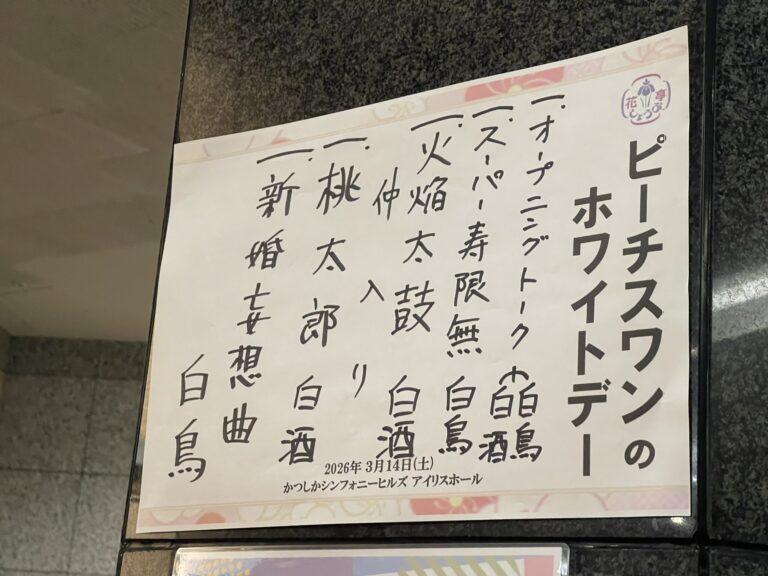 花しょうぶ亭
ピーチスワンの
ホワイトデー
一.オープニングトーク 白鳥 白酒
一.スーパー寿限無 白鳥
一.火焔太鼓 白酒
仲入り
一.桃太郎 白酒
一.新婚妄想曲 白鳥
2026年 3月14日(土)
かつしかシンフォニーヒルズ アイリスホール